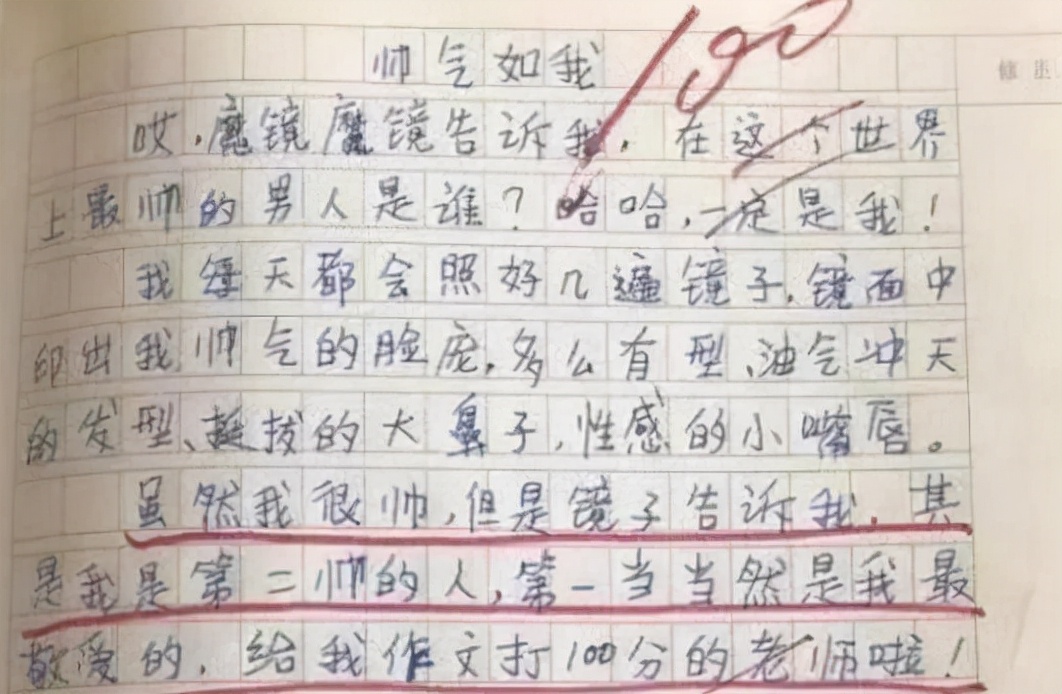 帅气如我
100
哎,魔镜魔镜告诉我,在这个世界
上最帅的男人是谁?哈哈,一定是我!
我每天都会照好几遍镜子,镜面中
印出我帅气的脸庞,多么有型、油气冲天
的发型、挺拔的大鼻子,性感的小嘴唇。
虽然我很帅,但是镜子告诉我,其
是我是第二帅的人,第一当当然是我最
敬爱的,给我作文打100分的老师啦!